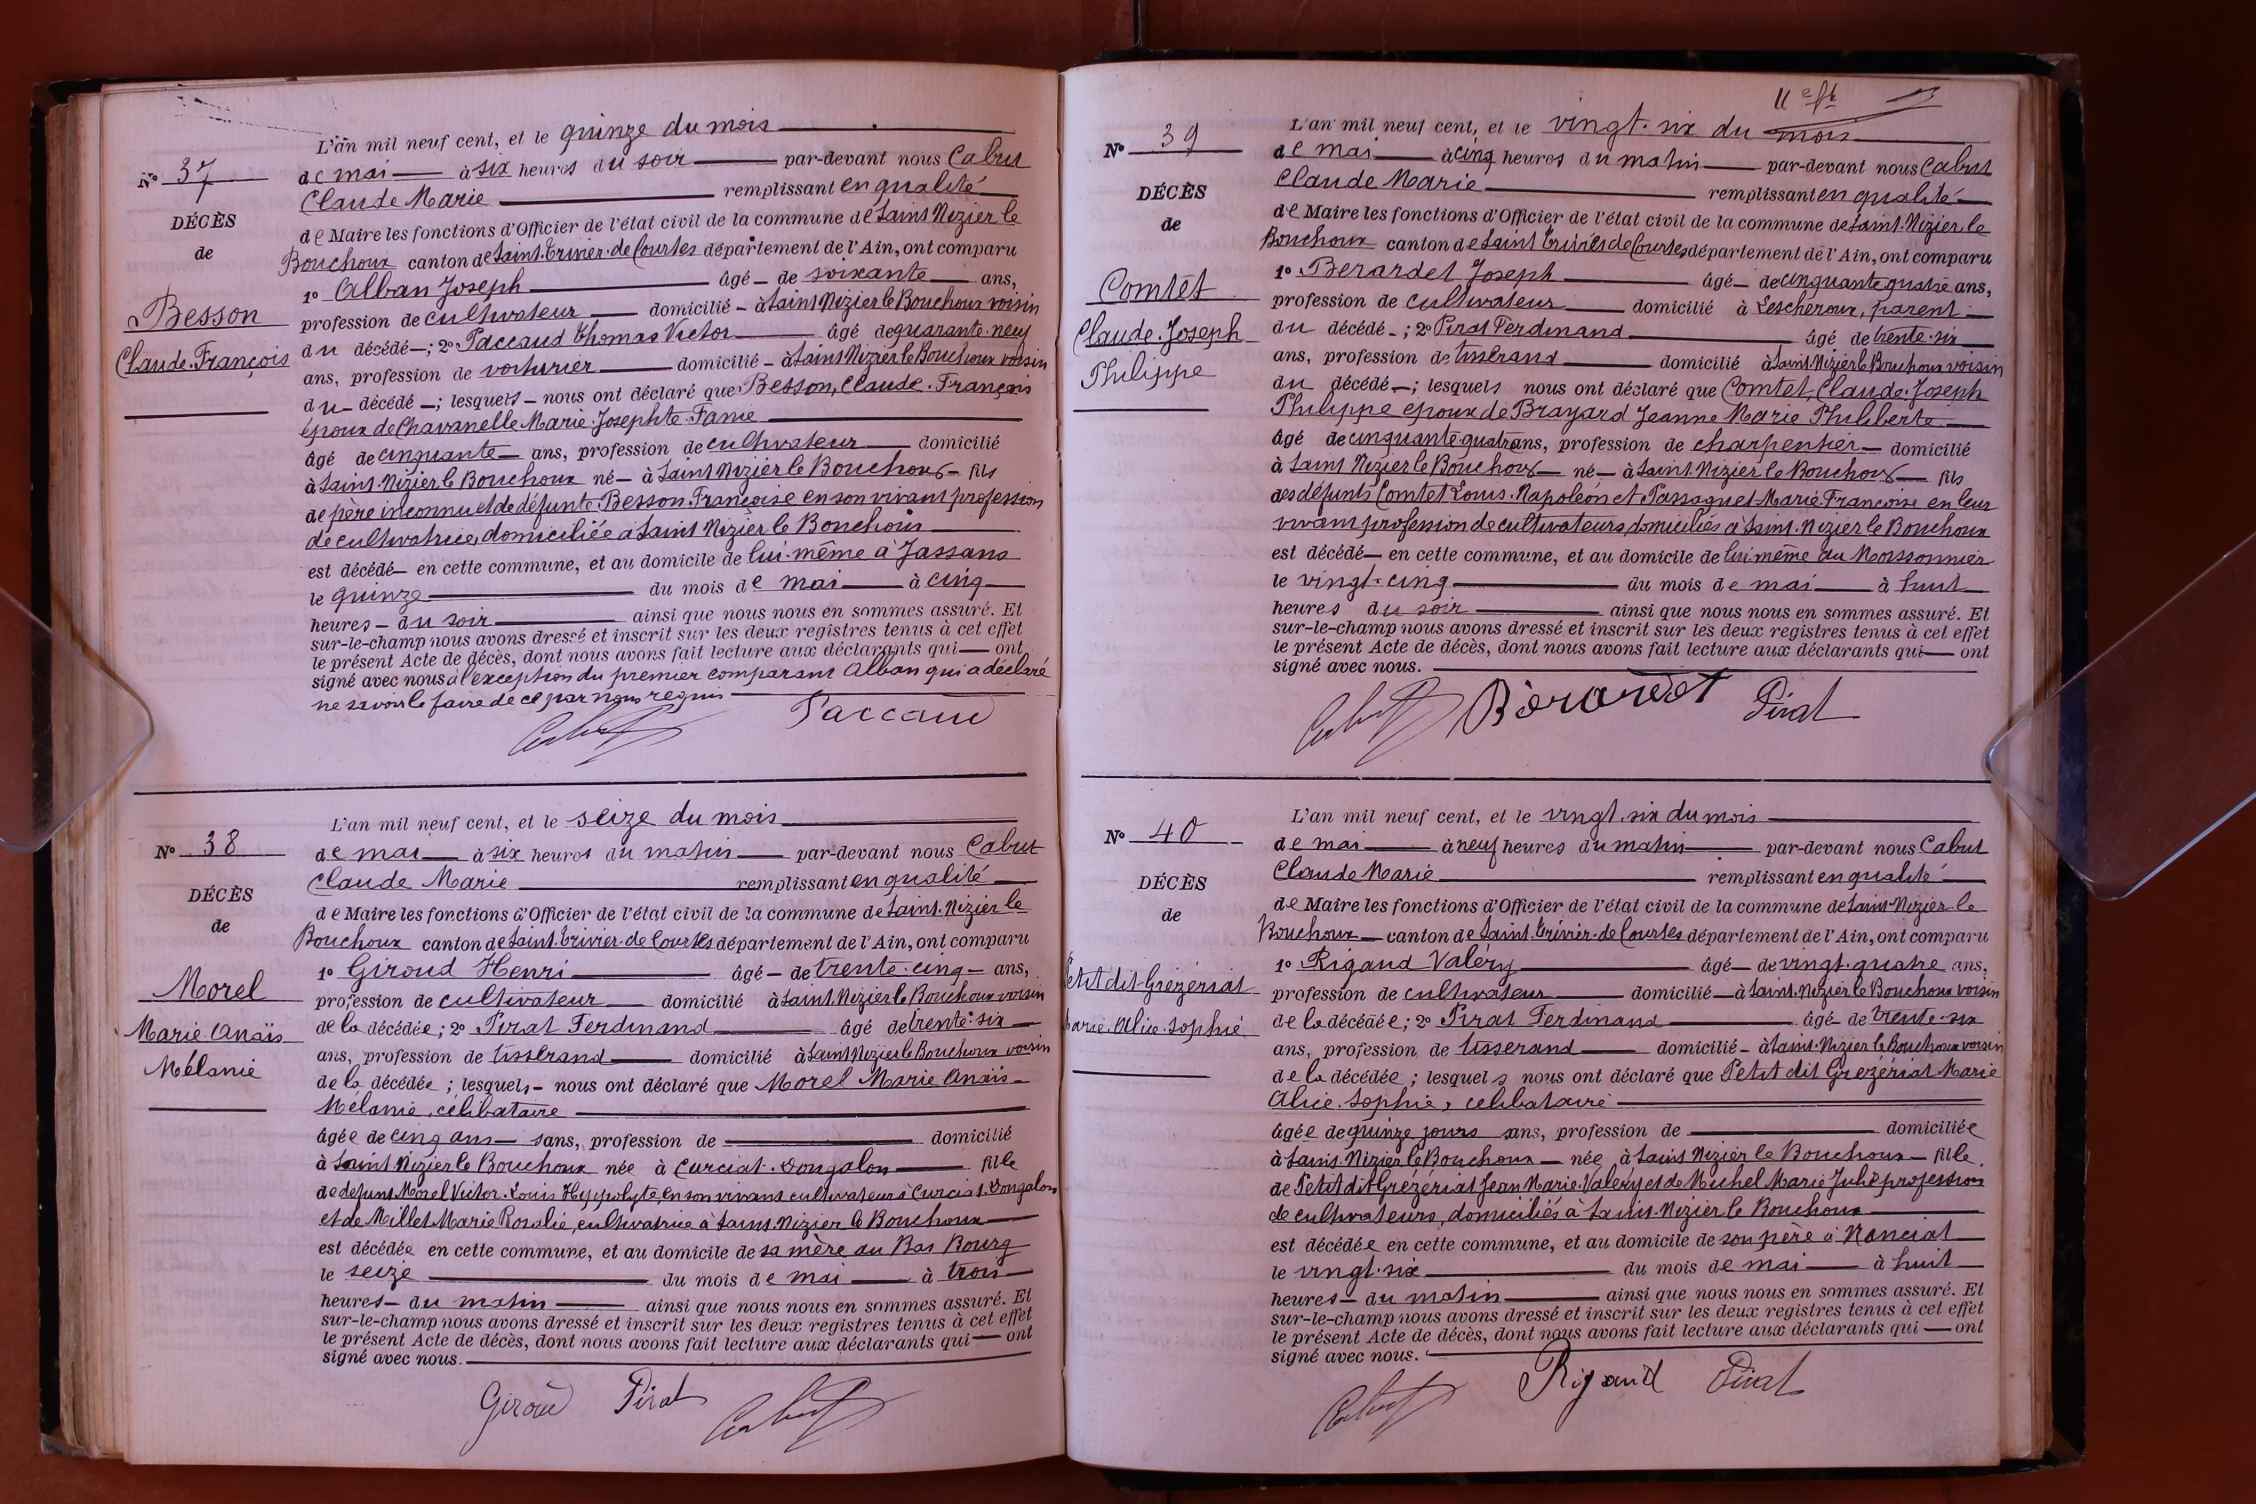 L'an mil neuf cent, et le quinze du mois
N° 37
de mai à six heures du soir par-devant nous Cabut
Claude Marie remplissant en qualité
DÉCÈS
de Maire les fonctions d'Officier de l'état civil de la commune de Saint Nizier le
de
Bouchoux canton de Saint-Trivier-de-Courtes département de l'Ain, ont comparu
1° Alban Joseph âgé de soixante ans,
Besson
profession de cultivateur domicilié à Saint Nizier le Bouchoux voisin
du décédé ; 2° Paccaud Thomas Victor âgé de quarante-neuf
Claude-François
ans, profession de voiturier domicilié à Saint Nizier le Bouchoux voisin
du décédé ; lesquels nous ont déclaré que Besson, Claude-François
époux de Chavanelle Marie-Josephte-Fanie
âgé de cinquante ans, profession de cultivateur domicilié
à Saint-Nizier le Bouchoux né à Saint Nizier le Bouchoux fils
de père inconnu et de défunte Besson Françoise en son vivant profession
de cultivatrice, domiciliée à Saint Nizier le Bouchoux
est décédé en cette commune, et au domicile de lui-même à Jassans
le quinze du mois de mai à cinq
heures du soir ainsi que nous nous en sommes assuré. Et
sur-le-champ nous avons dressé et inscrit sur les deux registres tenus à cet effet
le présent Acte de décès, dont nous avons fait lecture aux déclarants qui ont
signé avec nous à l'exception du premier comparant Alban qui a déclaré
ne savoir le faire de ce par nous requis
Cabut Paccaud
L'an mil neuf cent, et le seize du mois
N° 38
de mai à six heures du matin par-devant nous Cabut
Claude Marie remplissant en qualité
DÉCÈS
de Maire les fonctions d'Officier de l'état civil de la commune de Saint-Nizier le
de
Bouchoux canton de Saint-Trivier-de-Courtes département de l'Ain, ont comparu
1° Giroud Henri âgé de trente-cinq ans,
Morel
profession de cultivateur domicilié à Saint Nizier le Bouchoux voisin
Marie Anaïs
de la décédée ; 2° Pirat Ferdinand âgé de trente-six
ans, profession de tisserand domicilié à Saint Nizier le Bouchoux voisin
Mélanie
de la décédée ; lesquels nous ont déclaré que Morel Marie Anaïs
Mélanie, célibataire
âgée de cinq ans sans, profession de domicilié
à Saint Nizier le Bouchoux née à Curciat-Dongalon fille
de défunt Morel Victor-Louis Hyppolyte en son vivant cultivateur à Curciat-Dongalon
et de Millet Marie Rosalie, cultivatrice à Saint-Nizier le Bouchoux
est décédée en cette commune, et au domicile de sa mère au Bas Bourg
le seize du mois de mai à trois
heures du matin ainsi que nous nous en sommes assuré. Et
sur-le-champ nous avons dressé et inscrit sur les deux registres tenus à cet effet
le présent Acte de décès, dont nous avons fait lecture aux déclarants qui ont
signé avec nous.
Giroud Pirat Cabut
11e ft
L'an mil neuf cent, et le vingt-six du mois
N° 39
de mai à cinq heures du matin par-devant nous Cabut
Claude Marie remplissant en qualité
DÉCÈS
de Maire les fonctions d'Officier de l'état civil de la commune de Saint-Nizier le
de
Bouchoux canton de Saint Trivier de Courtes département de l'Ain, ont comparu
1° Berardet Joseph âgé de cinquante quatre ans,
Comtet
profession de cultivateur domicilié à Lescheroux, parent
Claude-Joseph
du décédé ; 2° Pirat Ferdinand âgé de trente-six
ans, profession de tisserand domicilié à Saint-Nizier le Bouchoux voisin
Philippe
du décédé ; lesquels nous ont déclaré que Comtet, Claude-Joseph
Philippe époux de Brayard Jeanne Marie Philiberte
âgé de cinquante quatre ans, profession de charpentier domicilié
à Saint Nizier le Bouchoux né à Saint-Nizier le Bouchoux fils
des défunts Comtet Louis-Napoléon et Passaquet Marie-Françoise en leur
vivant profession de cultivateurs, domiciliés à Saint-Nizier le Bouchoux
est décédé en cette commune, et au domicile de lui même au Moissonnier
le vingt-cinq du mois de mai à huit
heures du soir ainsi que nous nous en sommes assuré. Et
sur-le-champ nous avons dressé et inscrit sur les deux registres tenus à cet effet
le présent Acte de décès, dont nous avons fait lecture aux déclarants qui ont
signé avec nous.
Cabut Bérardet Pirat
L'an mil neuf cent, et le vingt-six du mois
N° 40
de mai à neuf heures du matin par-devant nous Cabut
Claude Marie remplissant en qualité
DÉCÈS
de Maire les fonctions d'Officier de l'état civil de la commune de Saint-Nizier le
de
Bouchoux canton de Saint-Trivier-de-Courtes département de l'Ain, ont comparu
1° Rigaud Valéry âgé de vingt-quatre ans,
Petit dit Grézériat
profession de cultivateur domicilié à Saint-Nizier le Bouchoux voisin
Marie-Alice-Sophie
de la décédée ; 2° Pirat Ferdinand âgé de trente-six
ans, profession de tisserand domicilié à Saint-Nizier le Bouchoux voisin
de la décédée ; lesquels nous ont déclaré que Petit dit Grézériat Marie
Alice-Sophie, célibataire
âgée de quinze jours ans, profession de domiciliée
à Saint-Nizier le Bouchoux née à Saint Nizier le Bouchoux fille
de Petit dit Grézériat Jean Marie-Valéry et de Michel Marie Julie profession
de cultivateurs, domiciliés à Saint-Nizier le Bouchoux
est décédée en cette commune, et au domicile de son père à Nanciat
le vingt-six du mois de mai à huit
heures du matin ainsi que nous nous en sommes assuré. Et
sur-le-champ nous avons dressé et inscrit sur les deux registres tenus à cet effet
le présent Acte de décès, dont nous avons fait lecture aux déclarants qui ont
signé avec nous.
Cabut Rigaud Pirat